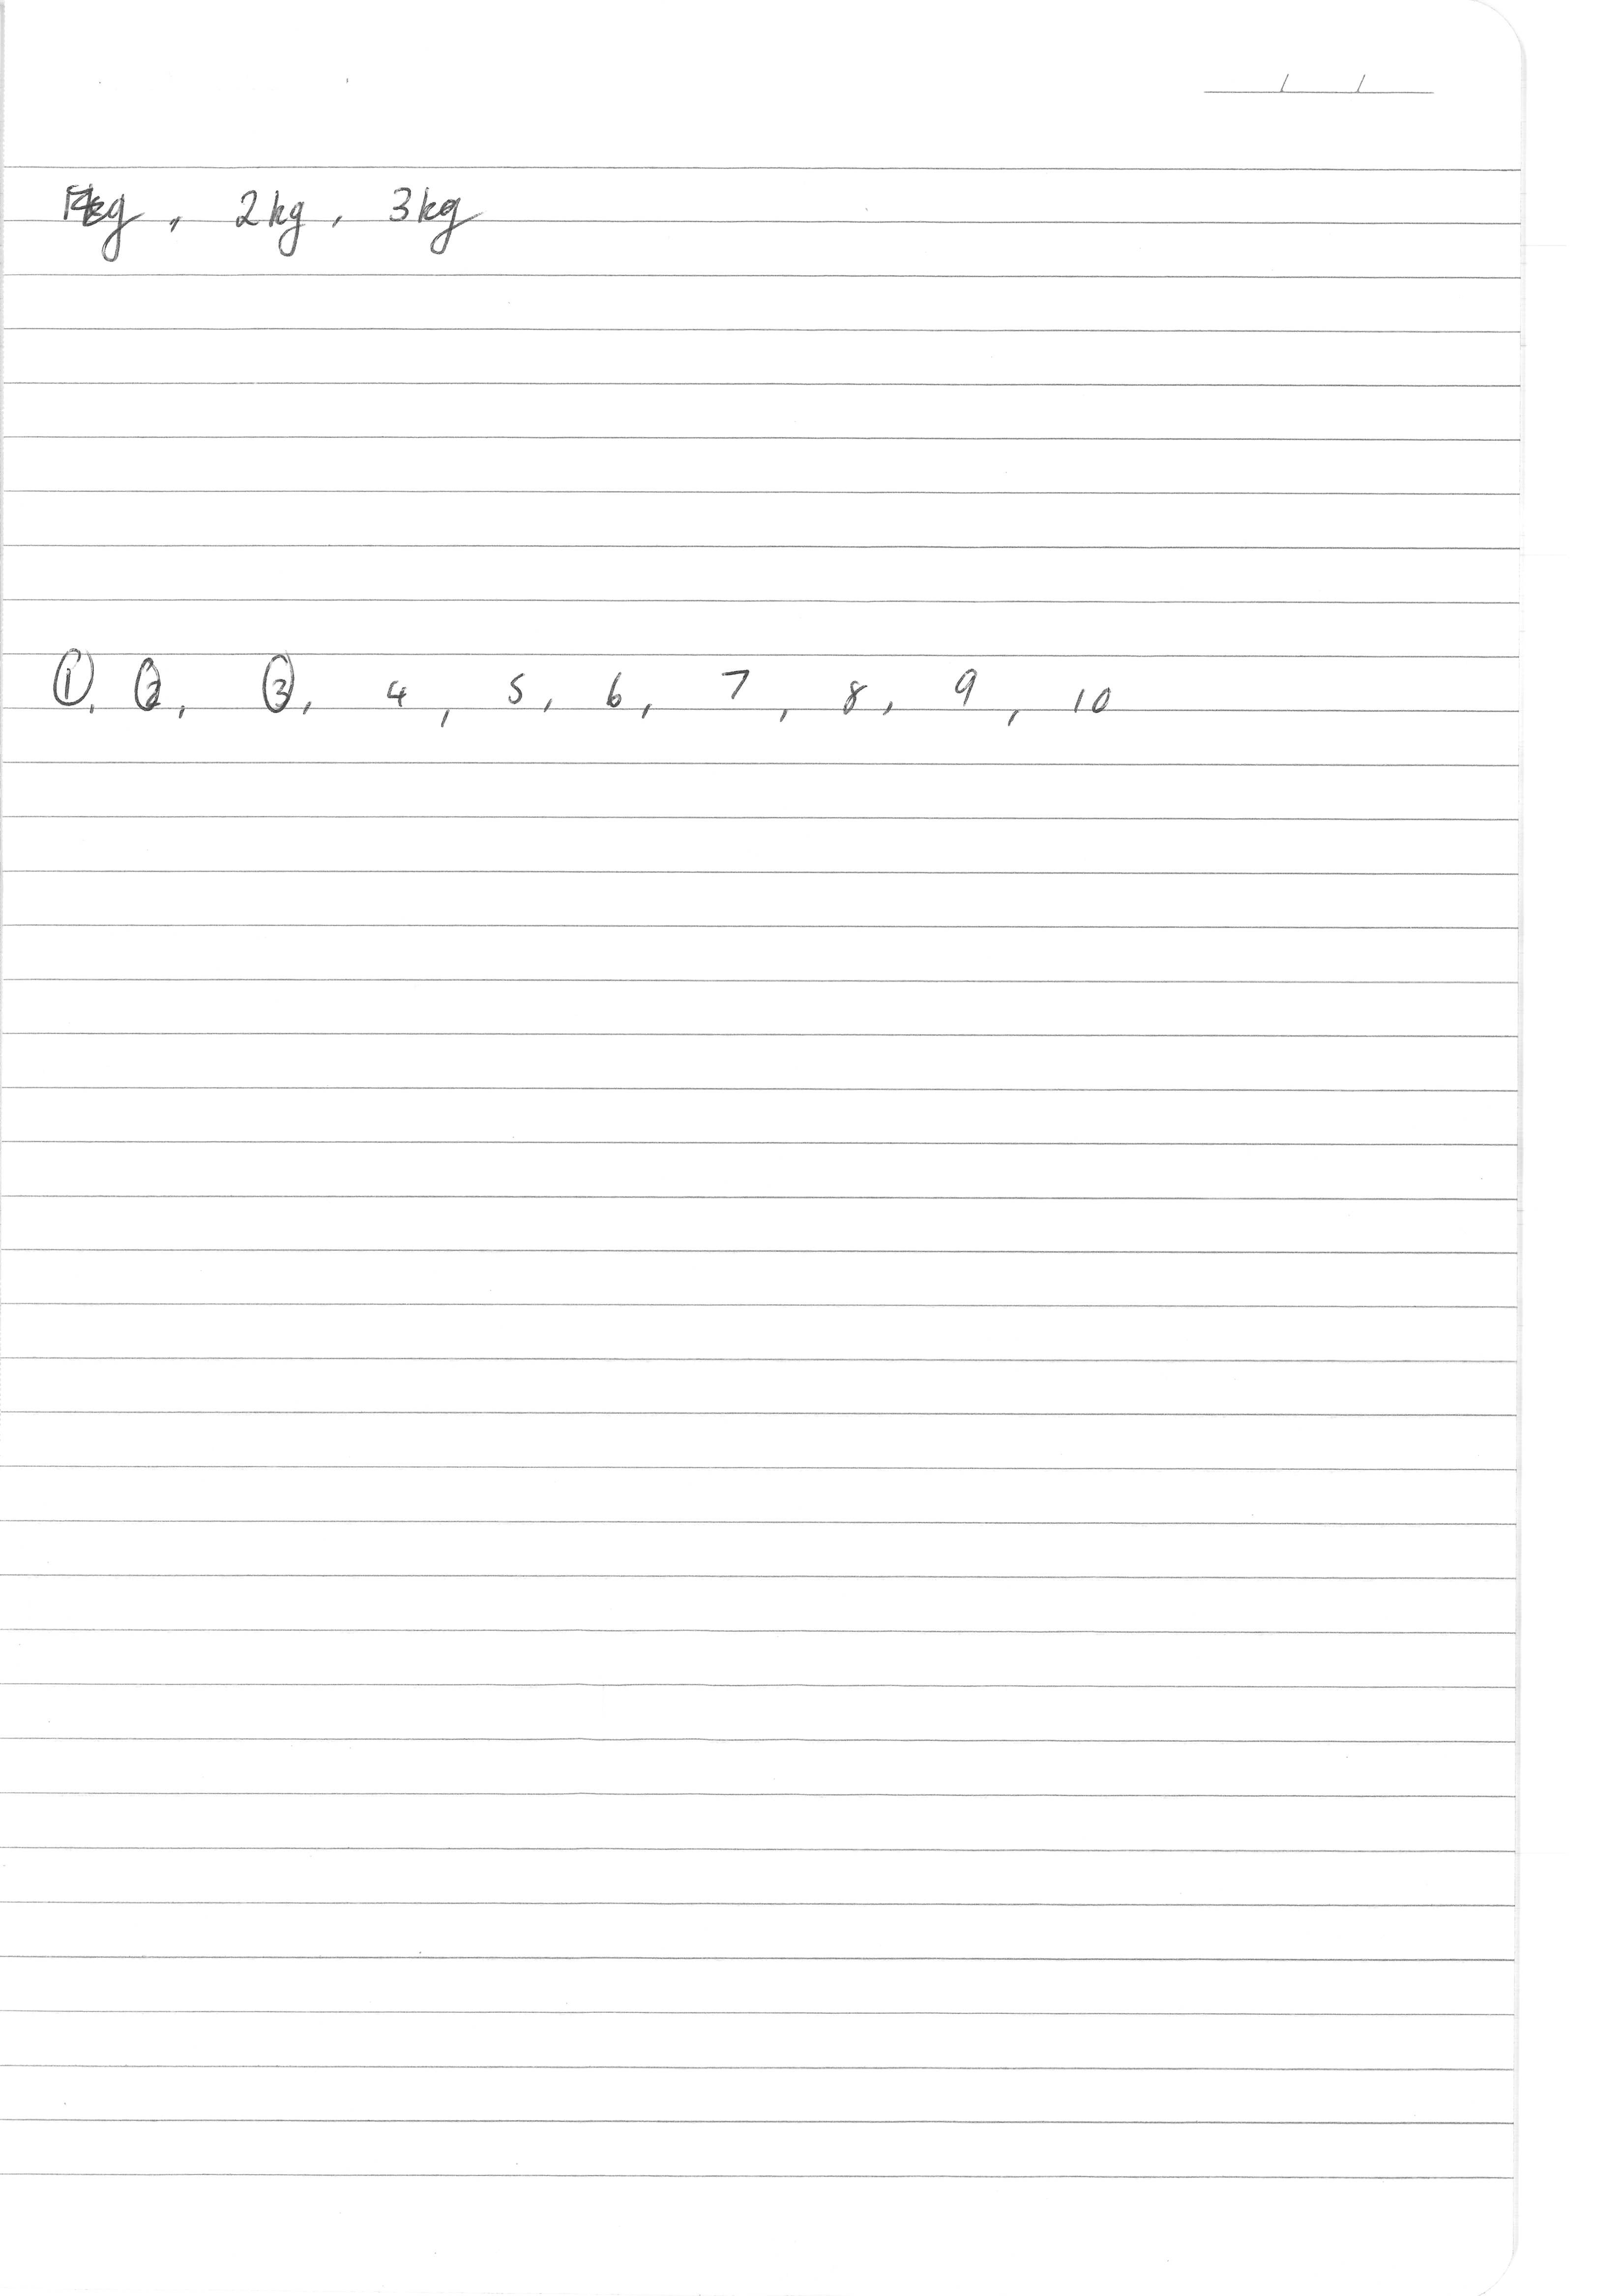 1kg, 2kg, 3kg
①, ②, ③, 4, 5, 6, 7, 8, 9, 10